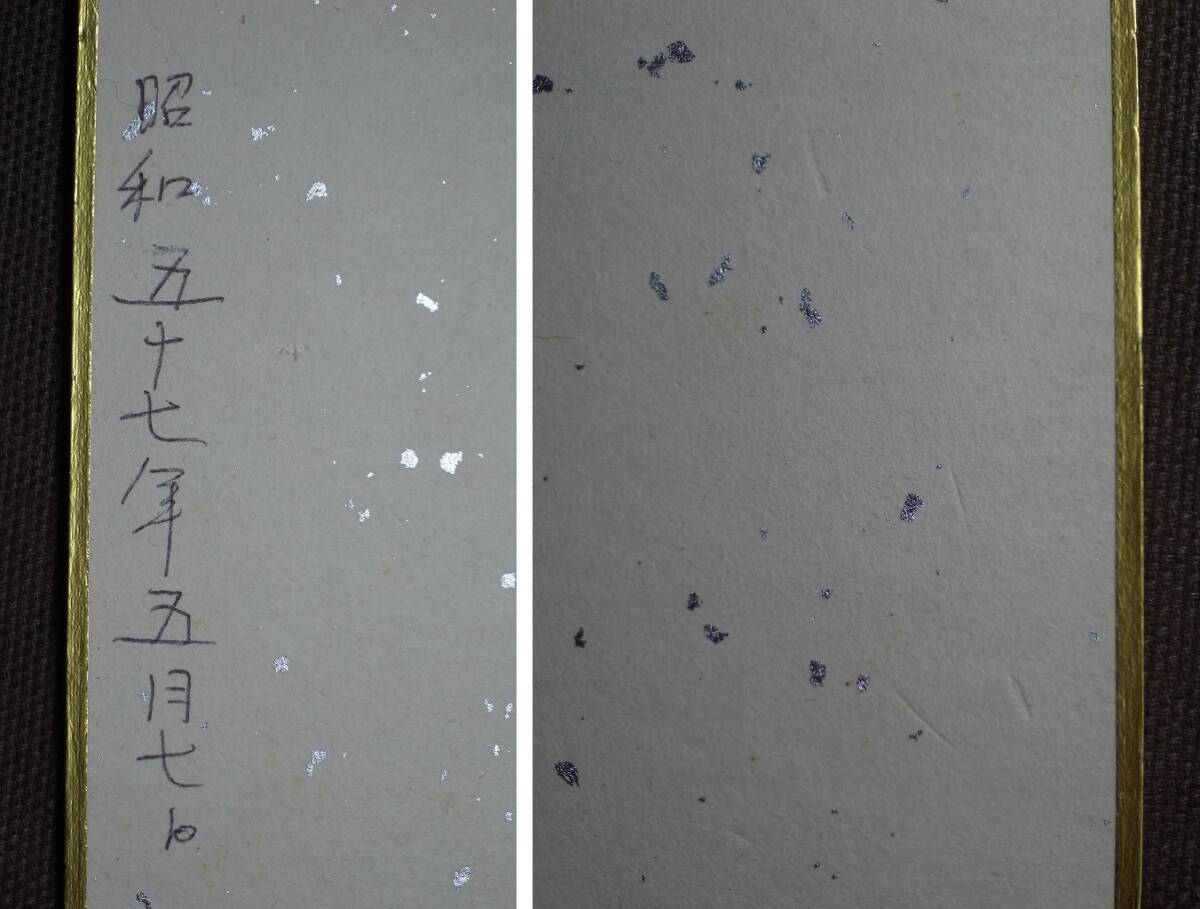 昭和五十七年五月七日